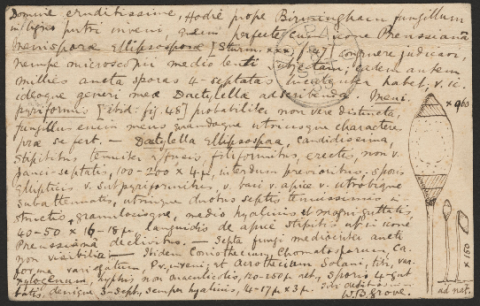 Domine eruditissime, Hodie prope Birmingham fungillum
in ligno putri inveni, quem perfecte cum icone Preussiana
Menisporae ellipsosporae [Sturm. xxx f. 47] congruere judicavi,
nempe microscopii medio lenti; autem
milles aucta sporas 4-septatas habet, v. s.
ideoque generi meo Dactylella adscribenda. Men.
pyriformis [ibid. fig. 48] probabiliter non vere distincta,
fungillus enim meus quandoque utriusque characteres
prae se fert. — Dactylella ellipsospora, candidissima,
stipitibus tenuiter effusis, filiformibus, erectis, non v.
pauci-septatis, 100-200 × 4 μ, interdum brevioribus, sporis
ellipticis v. subpyriformibus, v. basi v. apice v. utrobique
subattenuatis, utrinque duobus septis tenuissimis in-
structis, granulosisque, medio hyalinis et magni-guttatis,
40-50 × 16-18 μ, languide de apice stipitis ut in icone
Preussiana declivibus. — Septa fungi mediocriter aucti
non visibilia — Ibidem Coniothecium Chomatosporum, Ca.
forma variegatum, et Acrothecium Solani, tibi, var.
xylogenum, hyphis non 120-150 μ alt, sporis 4-gut
tatis, denique 3-sept, semper hyalinis, 14-17 × 3 μ.
W. B. Grove.
× 960
× 150
ad nat.